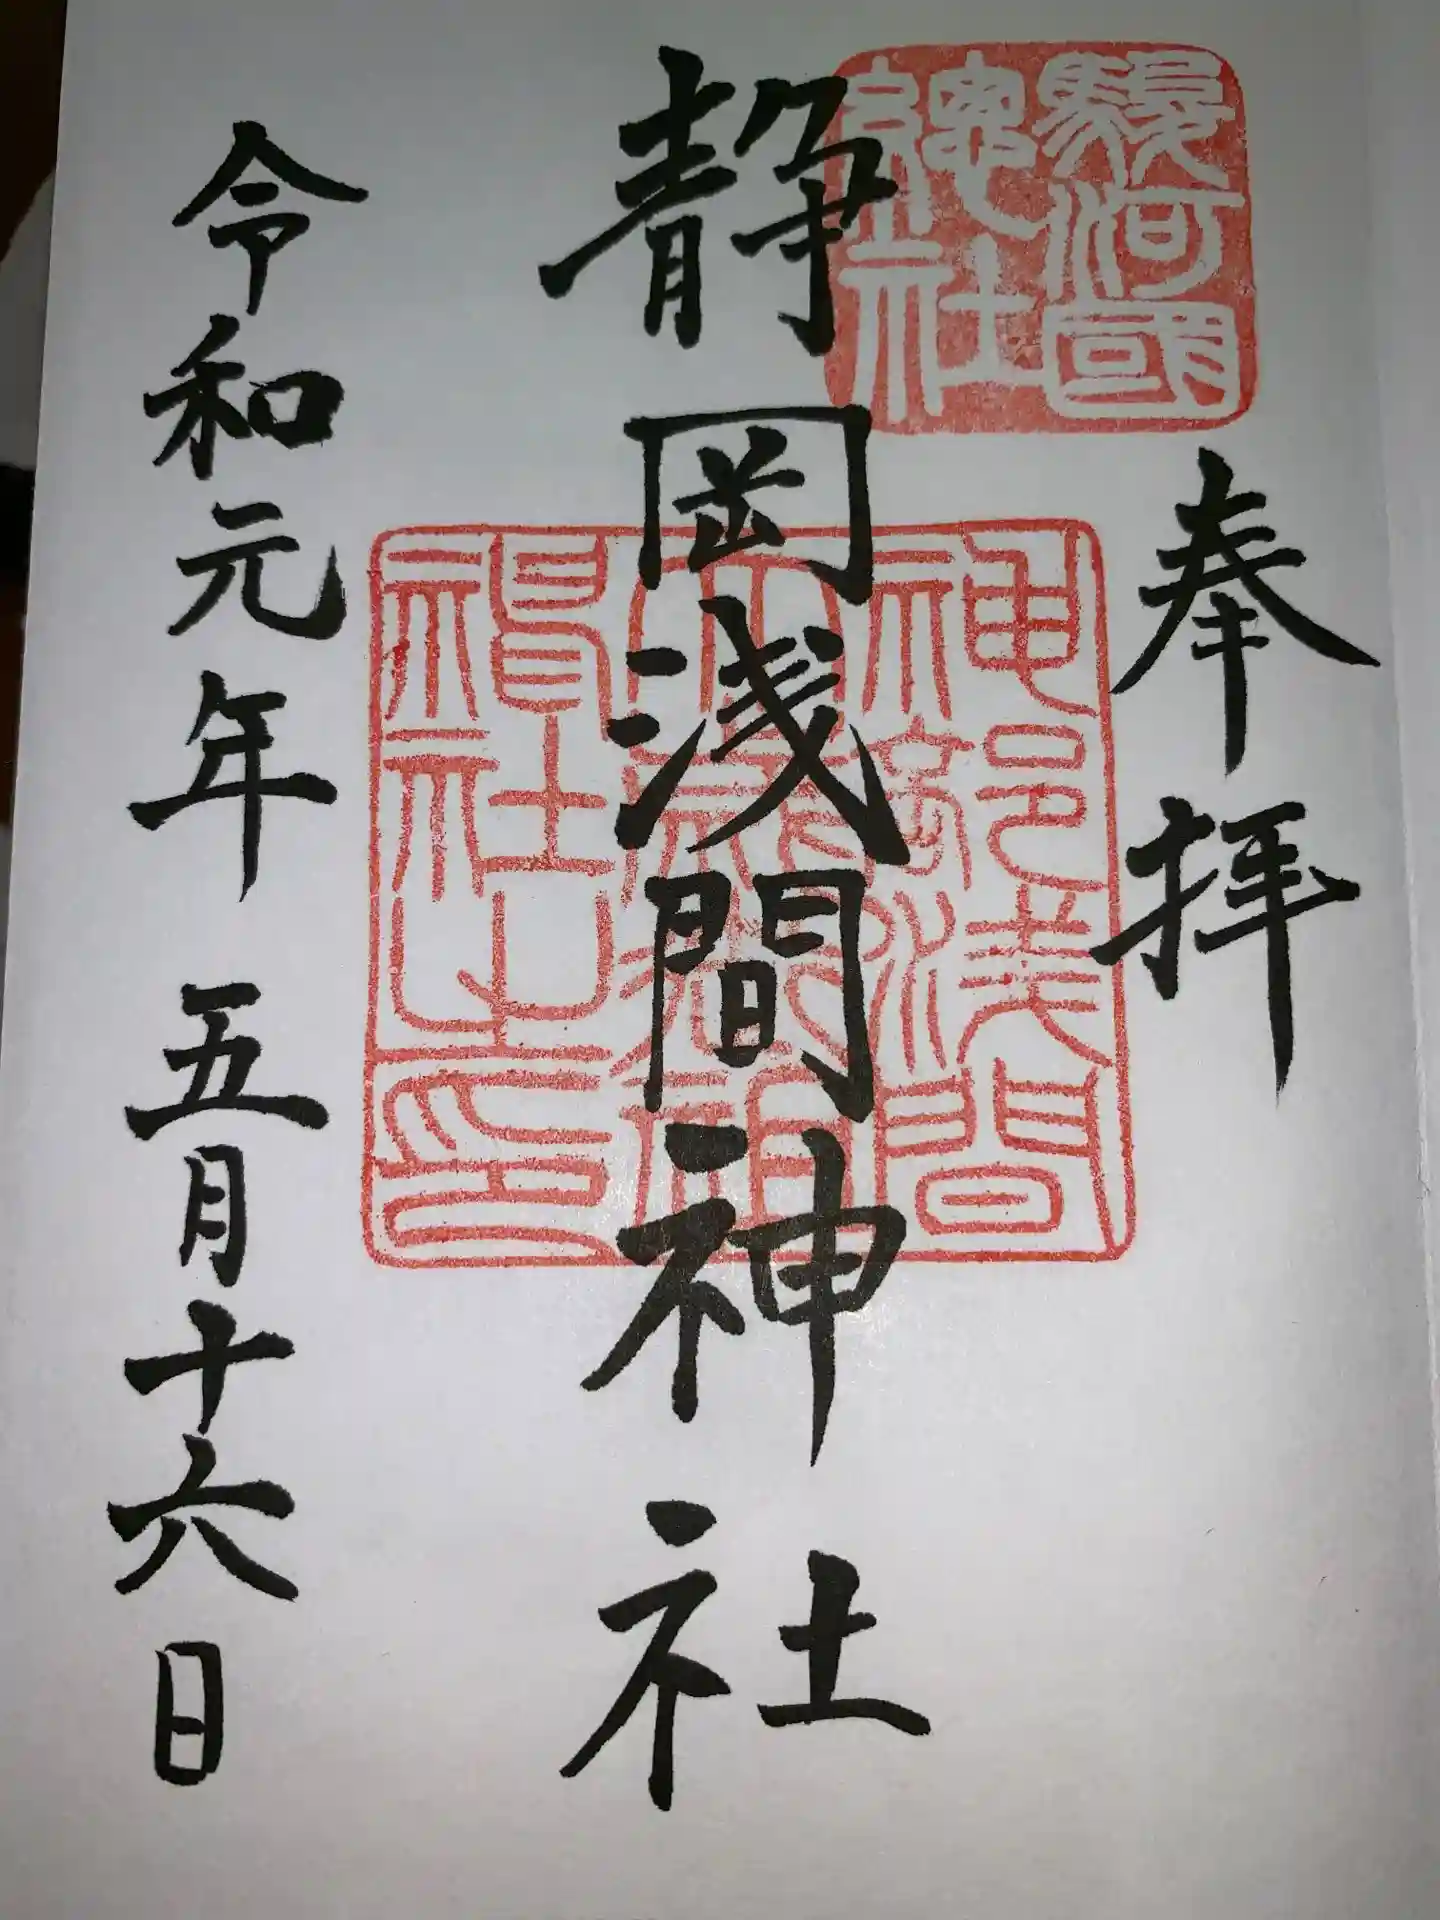 奉拝
駿河國
總社
静岡浅間神社
神部浅間
大歳御祖
神社之印
令和元年五月十六日